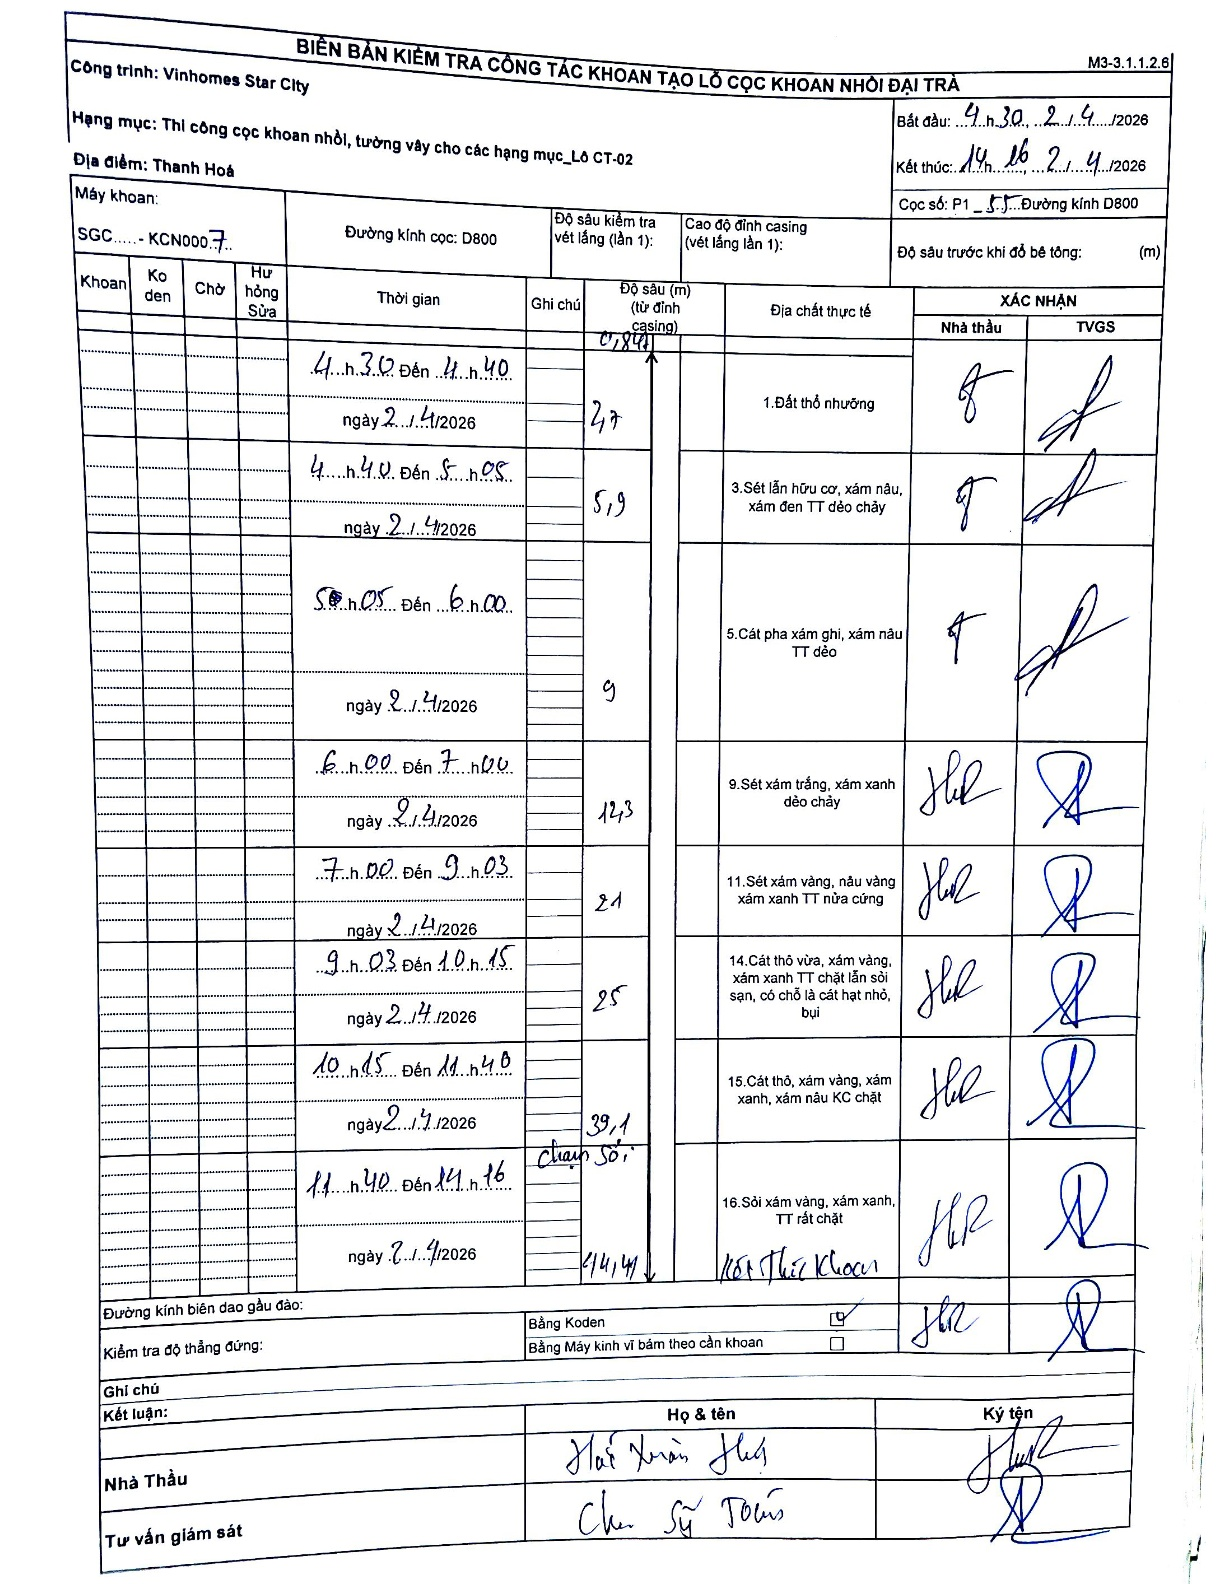 BIÊN BẢN KIỂM TRA CÔNG TÁC KHOAN TẠO LỖ CỌC KHOAN NHỒI ĐẠI TRÀ
M3-3.1.1.2.6
Công trình: Vinhomes Star City
Hạng mục: Thi công cọc khoan nhồi, tường vây cho các hạng mục_Lô CT-02
Địa điểm: Thanh Hoá
Bắt đầu: 4 h 30, 2/4/2026
Kết thúc: 14h 16, 2/4/2026
Cọc số: P1_55 Đường kính D800
Máy khoan:
SGC.....- KCN0007
Đường kính cọc: D800
Độ sâu kiểm tra
vét lắng (lần 1):
Cao độ đỉnh casing
(vét lắng lần 1):
Độ sâu trước khi đổ bê tông: (m)
Khoan
Ko
den
Chờ
Hư
hỏng
Sửa
Thời gian
Ghi chú
Độ sâu (m)
(từ đỉnh
casing)
Địa chất thực tế
XÁC NHẬN
Nhà thầu
TVGS
4 h 30 Đến 4 h 40
ngày 2/4/2026
2,7
1.Đất thổ nhưỡng
4 h 40 Đến 5 h 05
ngày 2/4/2026
5,9
3.Sét lẫn hữu cơ, xám nâu,
xám đen TT dẻo chảy
5 h 05 Đến 6 h 00
ngày 2/4/2026
9
5.Cát pha xám ghi, xám nâu
TT dẻo
6 h 00 Đến 7 h 00
ngày 2/4/2026
12,3
9.Sét xám trắng, xám xanh
dẻo chảy
7 h 00 Đến 9 h 03
ngày 2/4/2026
21
11.Sét xám vàng, nâu vàng
xám xanh TT nửa cứng
9 h 03 Đến 10 h 15
ngày 2/4/2026
25
14.Cát thô vừa, xám vàng,
xám xanh TT chặt lẫn sỏi
sạn, có chỗ là cát hạt nhỏ,
bụi
10 h 15 Đến 11 h 40
ngày 2/4/2026
39,1
15.Cát thô, xám vàng, xám
xanh, xám nâu KC chặt
Chạm Sỏi
11 h 40 Đến 14 h 16
ngày 2/4/2026
16.Sỏi xám vàng, xám xanh,
TT rất chặt
Kết Thúc Khoan
Đường kính biên dao gầu đào:
Kiểm tra độ thẳng đứng:
Bằng Koden
Bằng Máy kinh vĩ bám theo cần khoan
Ghi chú
Kết luận:
Họ & tên
Ký tên
Nhà Thầu
Tư vấn giám sát
Sỹ